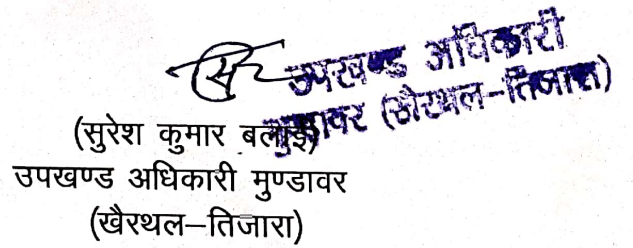 उपखण्ड अधिकारी
मुण्डावर (खैरथल-तिजारा)
(सुरेश कुमार बलाई)
उपखण्ड अधिकारी मुण्डावर
(खैरथल-तिजारा)